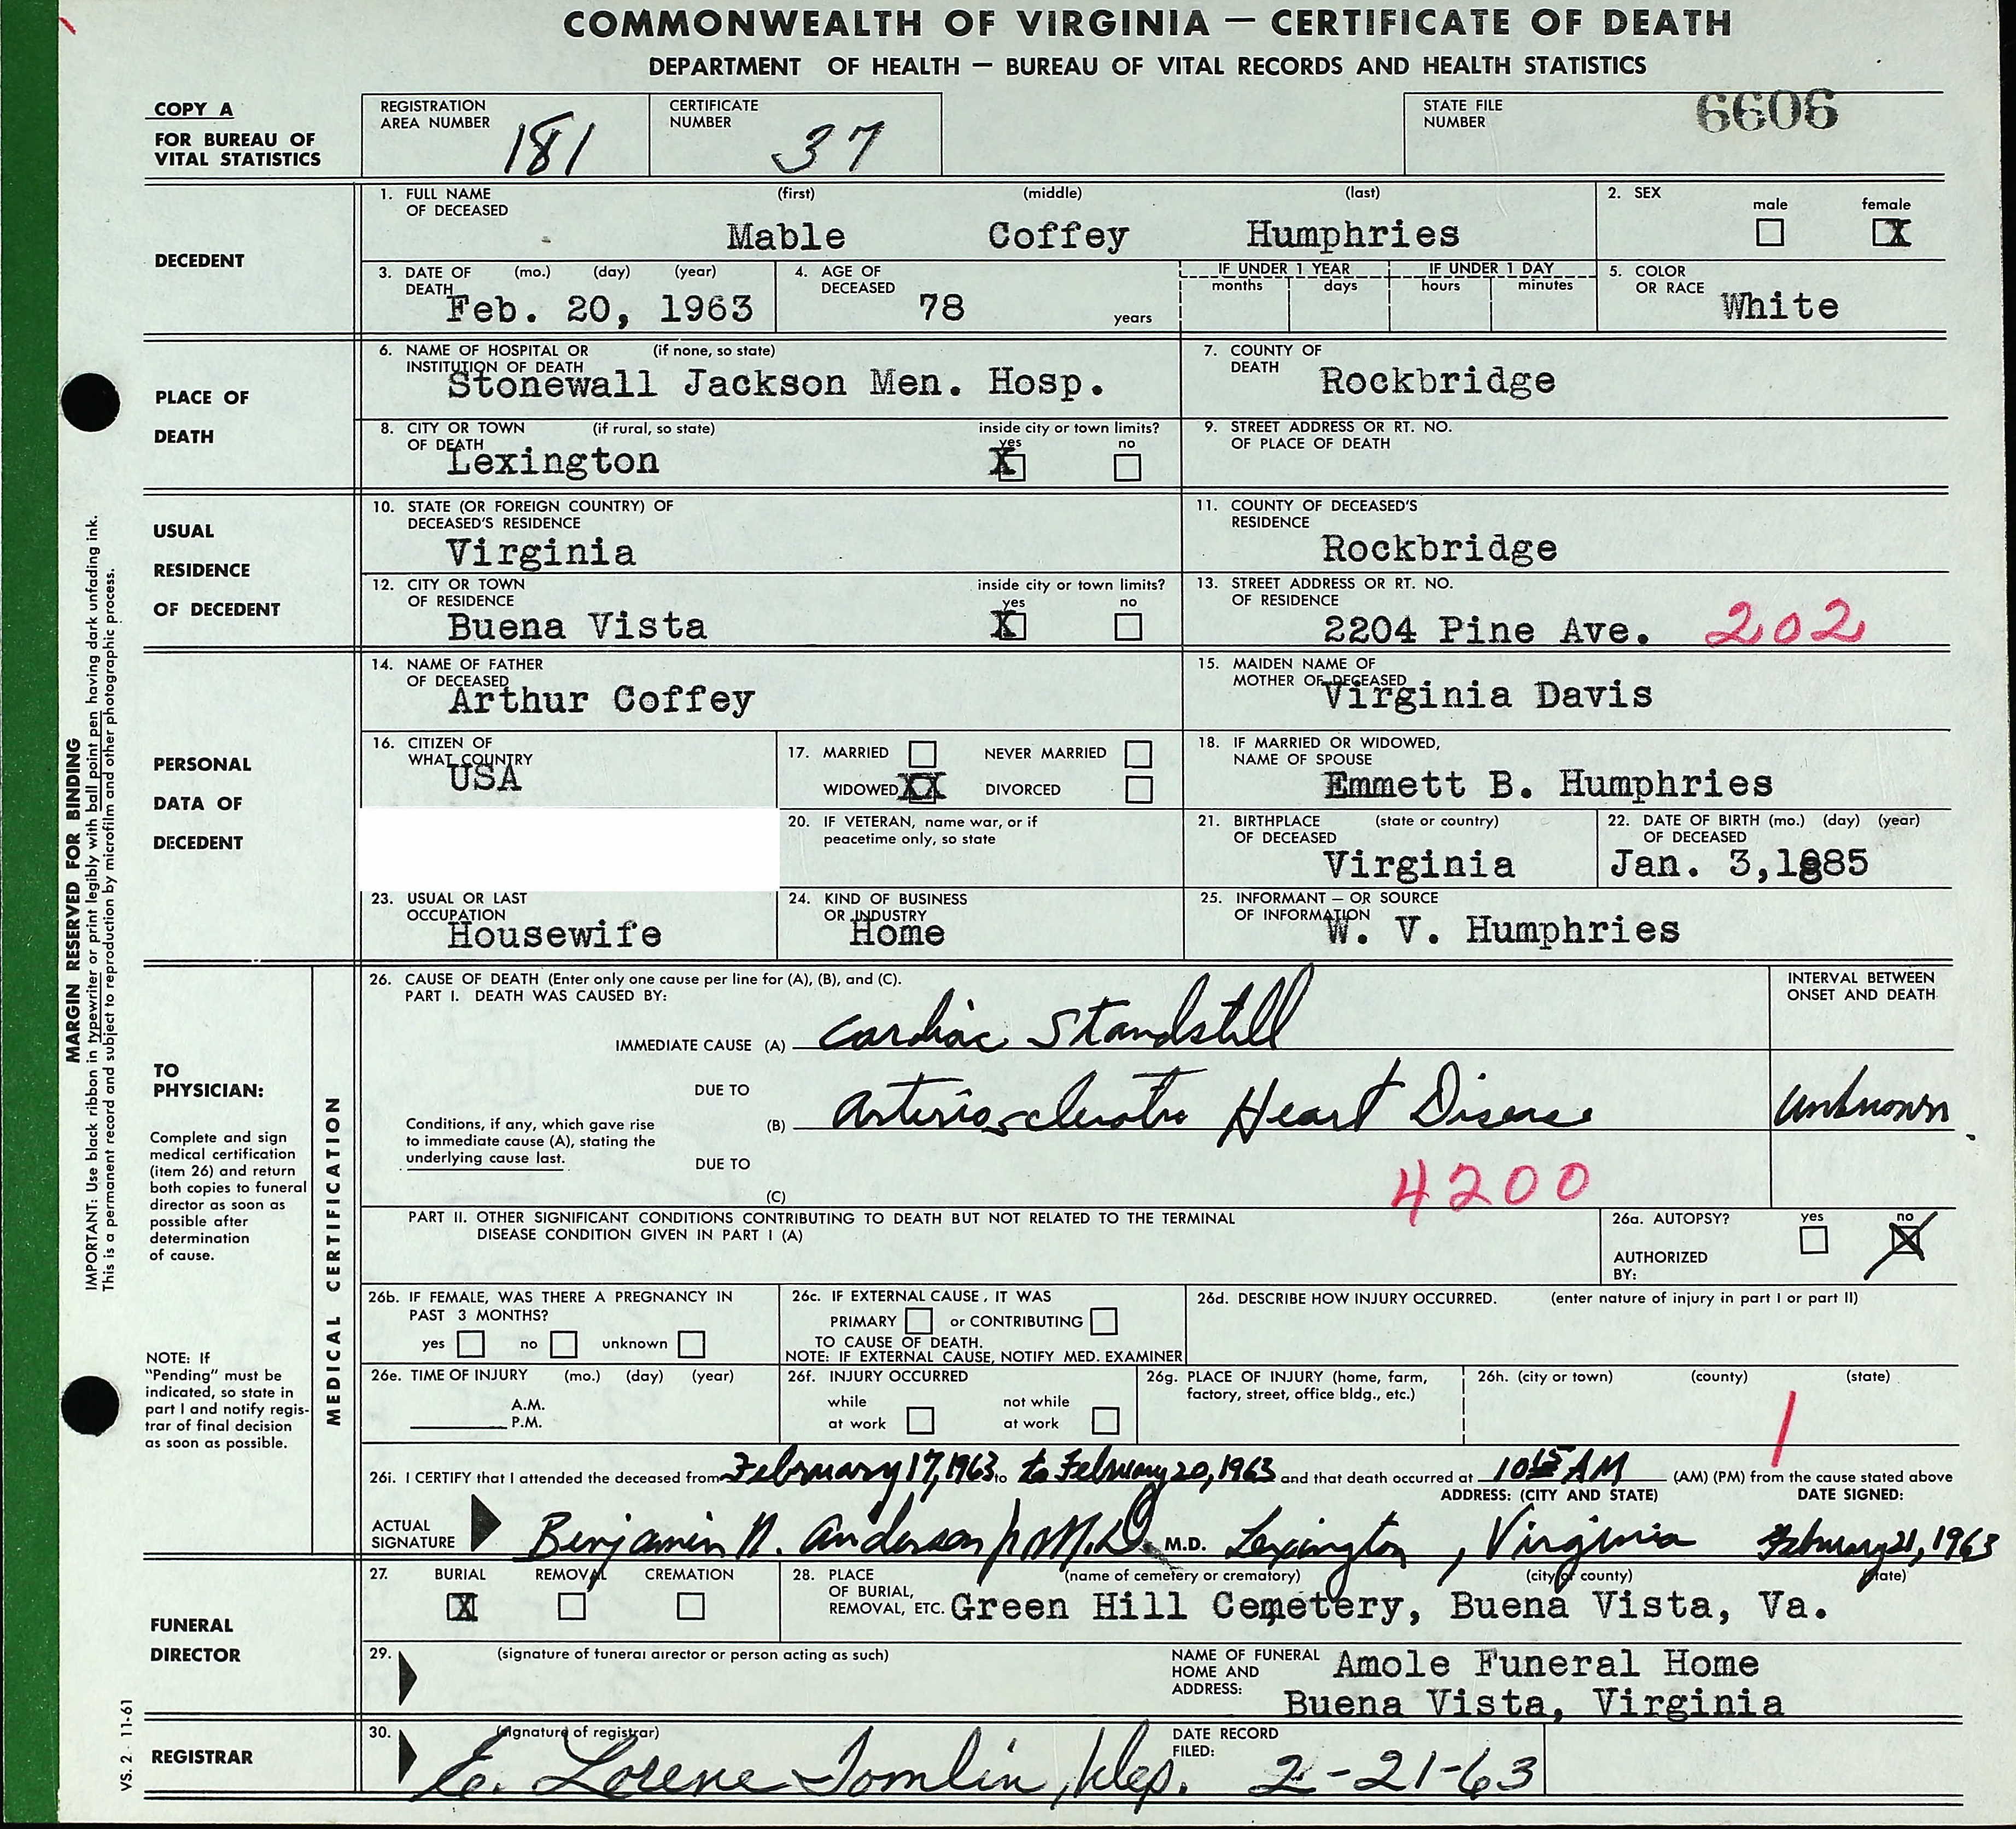 COMMONWEALTH OF VIRGINIA — CERTIFICATE OF DEATH
DEPARTMENT OF HEALTH — BUREAU OF VITAL RECORDS AND HEALTH STATISTICS
COPY A
FOR BUREAU OF
VITAL STATISTICS
REGISTRATION
AREA NUMBER 181
CERTIFICATE
NUMBER 37
STATE FILE
NUMBER 6606
DECEDENT
1. FULL NAME (first) (middle) (last)
OF DECEASED
Mable Coffey Humphries
2. SEX
male female
X
3. DATE OF (mo.) (day) (year)
DEATH
Feb. 20, 1963
4. AGE OF
DECEASED 78 years
IF UNDER 1 YEAR IF UNDER 1 DAY
months days hours minutes
5. COLOR
OR RACE White
PLACE OF
DEATH
6. NAME OF HOSPITAL OR (if none, so state)
INSTITUTION OF DEATH
Stonewall Jackson Men. Hosp.
7. COUNTY OF
DEATH Rockbridge
8. CITY OR TOWN (if rural, so state) inside city or town limits?
OF DEATH yes no
Lexington X
9. STREET ADDRESS OR RT. NO.
OF PLACE OF DEATH
USUAL
RESIDENCE
OF DECEDENT
10. STATE (OR FOREIGN COUNTRY) OF
DECEASED'S RESIDENCE
Virginia
11. COUNTY OF DECEASED'S
RESIDENCE
Rockbridge
12. CITY OR TOWN inside city or town limits?
OF RESIDENCE yes no
Buena Vista X
13. STREET ADDRESS OR RT. NO.
OF RESIDENCE
2204 Pine Ave. 202
PERSONAL
DATA OF
DECEDENT
14. NAME OF FATHER
OF DECEASED
Arthur Coffey
15. MAIDEN NAME OF
MOTHER OF DECEASED
Virginia Davis
16. CITIZEN OF
WHAT COUNTRY
USA
17. MARRIED NEVER MARRIED
WIDOWED XX DIVORCED
18. IF MARRIED OR WIDOWED,
NAME OF SPOUSE
Emmett B. Humphries
20. IF VETERAN, name war, or if
peacetime only, so state
21. BIRTHPLACE (state or country)
OF DECEASED
Virginia
22. DATE OF BIRTH (mo.) (day) (year)
OF DECEASED
Jan. 3,1885
23. USUAL OR LAST
OCCUPATION
Housewife
24. KIND OF BUSINESS
OR INDUSTRY
Home
25. INFORMANT — OR SOURCE
OF INFORMATION
W. V. Humphries
MARGIN RESERVED FOR BINDING
IMPORTANT: Use black ribbon in typewriter or print legibly with ball point pen having dark unfading ink.
This is a permanent record and subject to reproduction by microfilm and other photographic process.
TO
PHYSICIAN:
Complete and sign
medical certification
(item 26) and return
both copies to funeral
director as soon as
possible after
determination
of cause.
NOTE: If
"Pending" must be
indicated, so state in
part I and notify regis-
trar of final decision
as soon as possible.
MEDICAL CERTIFICATION
26. CAUSE OF DEATH (Enter only one cause per line for (A), (B), and (C).
PART I. DEATH WAS CAUSED BY:
INTERVAL BETWEEN
ONSET AND DEATH
IMMEDIATE CAUSE (A) Cardiac Standstill
DUE TO
Conditions, if any, which gave rise
to immediate cause (A), stating the
underlying cause last.
(B) Arteriosclerotic Heart Disease unknown
DUE TO
(C) 4200
PART II. OTHER SIGNIFICANT CONDITIONS CONTRIBUTING TO DEATH BUT NOT RELATED TO THE TERMINAL
DISEASE CONDITION GIVEN IN PART I (A)
26a. AUTOPSY? yes no
X
AUTHORIZED
BY:
26b. IF FEMALE, WAS THERE A PREGNANCY IN
PAST 3 MONTHS?
yes no unknown
26c. IF EXTERNAL CAUSE, IT WAS
PRIMARY or CONTRIBUTING
TO CAUSE OF DEATH.
NOTE: IF EXTERNAL CAUSE, NOTIFY MED. EXAMINER
26d. DESCRIBE HOW INJURY OCCURRED. (enter nature of injury in part I or part II)
26e. TIME OF INJURY (mo.) (day) (year)
A.M.
P.M.
26f. INJURY OCCURRED
while not while
at work at work
26g. PLACE OF INJURY (home, farm,
factory, street, office bldg., etc.)
26h. (city or town) (county) (state)
1
26i. I CERTIFY that I attended the deceased from February 17, 1963 to to February 20, 1963 and that death occurred at 10 AM (AM) (PM) from the cause stated above
ADDRESS: (CITY AND STATE) DATE SIGNED:
ACTUAL
SIGNATURE Benjamin N. Anderson Jr M.D. M.D. Lexington, Virginia February 21, 1963
FUNERAL
DIRECTOR
27. BURIAL REMOVAL CREMATION
X
28. PLACE (name of cemetery or crematory) (city or county) (state)
OF BURIAL,
REMOVAL, ETC. Green Hill Cemetery, Buena Vista, Va.
29. (signature of funeral director or person acting as such)
NAME OF FUNERAL
HOME AND
ADDRESS:
Amole Funeral Home
Buena Vista, Virginia
REGISTRAR
30. (signature of registrar)
E. Lorene Tomlin, Dep.
DATE RECORD
FILED: 2-21-63
VS. 2 11-61